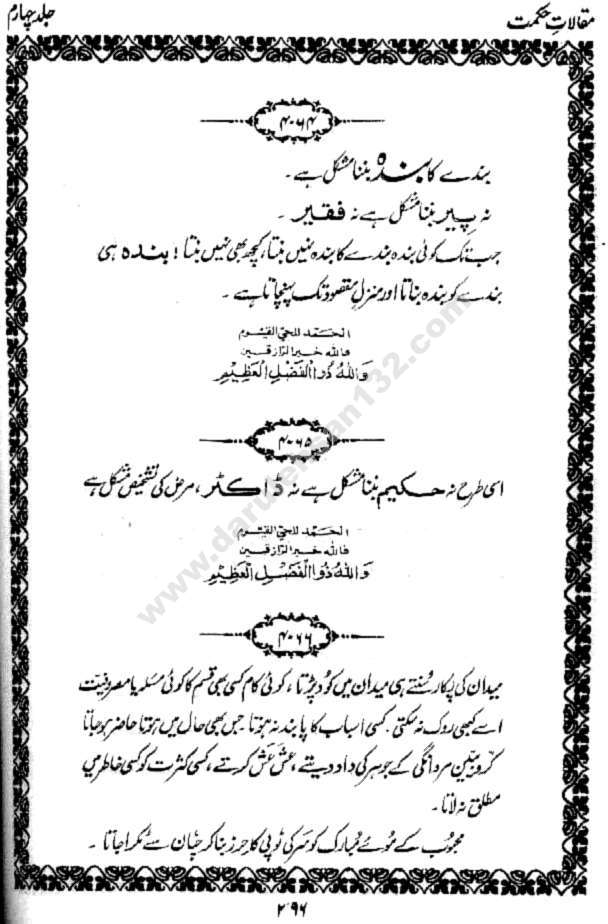 مقالاتِ حکمت
جلد چہارم
۴۰۶۴
بندے کا بندہ بننا مشکل ہے۔
نہ پیر بننا مشکل ہے نہ فقیر ۔
جب تک کوئی بندہ بندے کا بندہ نہیں بنتا، کچھ بھی نہیں بنتا! بندہ ہی
بندے کو بندہ بناتا اور منزلِ مقصود تک پہنچاتا ہے ۔
الحمد للحی القیوم
فاللہ خیر الرازقین
وَاللّٰہُ ذُوالْفَضْلِ الْعَظِیْمِ
۴۰۶۵
اسی طرح نہ حکیم بننا مشکل ہے نہ ڈاکٹر ، مرض کی تشخیص مشکل ہے
الحمد للحی القیوم
فاللہ خیر الرازقین
وَاللّٰہُ ذُوالْفَضْلِ الْعَظِیْمِ
۴۰۶۶
میدان کی پکار سُنتے ہی میدان میں کُود پڑتا، کوئی کام کسی بھی قسم کا کوئی مسئلہ یا مصروفیت
اسے کبھی روک نہ سکتی۔ کسی اسباب کا پابند نہ ہوتا جس بھی حال میں ہوتا حاضر ہو جاتا
کروبیّین مردانگی کے جوہر کی داد دیتے، عش عش کرتے، کسی کثرت کو کسی خاطر میں
مطلق نہ لاتا۔
محبُوب کے مُوئے مُبارک کو سر کی ٹوپی کا حرز بنا کر چٹان سے ٹکرا جاتا ۔
۲۹۶
www.darulehsan132.com